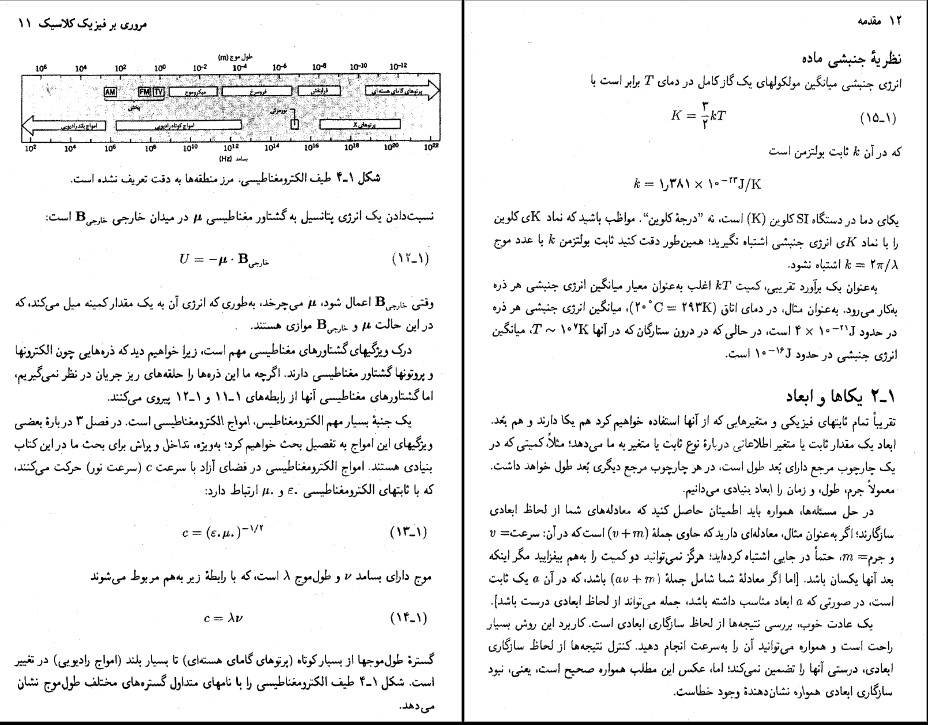 مروری بر فیزیک کلاسیک ۱۱
طول موج (m)
10⁶ 10⁴ 10² 10⁰ 10⁻² 10⁻⁴ 10⁻⁶ 10⁻⁸ 10⁻¹⁰ 10⁻¹²
AM FM TV میکروموج فروسرخ فرابنفش پرتوهای گامای هسته‌ای
پخش
امواج بلند رادیویی امواج کوتاه رادیویی نور مرئی پرتوهای X
10² 10⁴ 10⁶ 10⁸ 10¹⁰ 10¹² 10¹⁴ 10¹⁶ 10¹⁸ 10²⁰ 10²²
بسامد (Hz)
شکل ۱ـ۴ طیف الکترومغناطیسی. مرز منطقه‌ها به دقت تعریف نشده است.
نسبت‌دادن یک انرژی پتانسیل به گشتاور مغناطیسی μ در میدان خارجی B خارجی است:
(۱ـ۱۲) U = −μ · B خارجی
وقتی B خارجی اعمال شود، μ می‌چرخد، به‌طوری که انرژی آن به یک مقدار کمینه میل می‌کند، که
در این حالت μ و B خارجی موازی هستند.
درک ویژگیهای گشتاورهای مغناطیسی مهم است، زیرا خواهیم دید که ذره‌هایی چون الکترونها
و پروتونها گشتاور مغناطیسی دارند. اگرچه ما این ذره‌ها را حلقه‌های ریز جریان در نظر نمی‌گیریم،
اما گشتاورهای مغناطیسی آنها از رابطه‌های ۱ـ۱۱ و ۱ـ۱۲ پیروی می‌کنند.
یک جنبهٔ بسیار مهم الکترومغناطیس، امواج الکترومغناطیسی است. در فصل ۳ دربارهٔ بعضی
ویژگیهای این امواج به تفصیل بحث خواهیم کرد؛ به‌ویژه، تداخل و پراش برای بحث ما در این کتاب
بنیادی هستند. امواج الکترومغناطیسی در فضای آزاد با سرعت c (سرعت نور) حرکت می‌کنند،
که با ثابتهای الکترومغناطیسی ε۰ و μ۰ ارتباط دارد:
(۱ـ۱۳) c = (ε۰μ۰)^−۱/۲
موج دارای بسامد ν و طول‌موج λ است، که با رابطهٔ زیر به‌هم مربوط می‌شوند
(۱ـ۱۴) c = λν
گسترهٔ طول‌موجها از بسیار کوتاه (پرتوهای گامای هسته‌ای) تا بسیار بلند (امواج رادیویی) در تغییر
است. شکل ۱ـ۴ طیف الکترومغناطیسی را با نامهای متداول گستره‌های مختلف طول‌موج نشان
می‌دهد.
۱۲ مقدمه
نظریهٔ جنبشی ماده
انرژی جنبشی میانگین مولکولهای یک گاز کامل در دمای T برابر است با
(۱ـ۱۵) K = ۳/۲ kT
که در آن k ثابت بولتزمن است
k = ۱٫۳۸۱ × ۱۰^−۲۳ J/K
یکای دما در دستگاه SI کلوین (K) است، نه "درجهٔ کلوین". مواظب باشید که نماد Kی کلوین
را با نماد Kی انرژی جنبشی اشتباه نگیرید؛ همین‌طور دقت کنید ثابت بولتزمن k با عدد موج
k = ۲π/λ اشتباه نشود.
به‌عنوان یک برآورد تقریبی، کمیت kT اغلب به‌عنوان معیار میانگین انرژی جنبشی هر ذره
به‌کار می‌رود. به‌عنوان مثال، در دمای اتاق (۲۰°C = ۲۹۳K)، میانگین انرژی جنبشی هر ذره
در حدود ۴ × ۱۰^−۲۱ J است، در حالی که در درون ستارگان که در آنها T ∼ ۱۰^۷K، میانگین
انرژی جنبشی در حدود ۱۰^−۱۶ J است.
۱ـ۲ یکاها و ابعاد
تقریباً تمام ثابتهای فیزیکی و متغیرهایی که از آنها استفاده خواهیم کرد هم یکا دارند و هم بُعد.
ابعاد یک مقدار ثابت یا متغیر اطلاعاتی دربارهٔ نوع ثابت یا متغیر به ما می‌دهد؛ مثلاً کمیتی که در
یک چارچوب مرجع دارای بُعد طول است، در هر چارچوب مرجع دیگری بُعد طول خواهد داشت.
معمولاً جرم، طول، و زمان را ابعاد بنیادی می‌دانیم.
در حل مسئله‌ها، همواره باید اطمینان حاصل کنید که معادله‌های شما از لحاظ ابعادی
سازگارند؛ اگر به‌عنوان مثال، معادله‌ای دارید که حاوی جملهٔ (v + m) است که در آن: سرعت= v
و جرم= m، حتماً در جایی اشتباه کرده‌اید؛ هرگز نمی‌توانید دو کمیت را به‌هم بیفزایید مگر اینکه
بعد آنها یکسان باشد. [اما اگر معادلهٔ شما شامل جملهٔ (av + m) باشد، که در آن a یک ثابت
است، در صورتی که a ابعاد مناسب داشته باشد، جمله می‌تواند از لحاظ ابعادی درست باشد].
یک عادت خوب، بررسی نتیجه‌ها از لحاظ سازگاری ابعادی است. کاربرد این روش بسیار
راحت است و همواره می‌توانید آن را به‌سرعت انجام دهید. کنترل نتیجه‌ها از لحاظ سازگاری
ابعادی، درستی آنها را تضمین نمی‌کند؛ اما، عکس این مطلب همواره صحیح است، یعنی، نبود
سازگاری ابعادی همواره نشان‌دهندهٔ وجود خطاست.